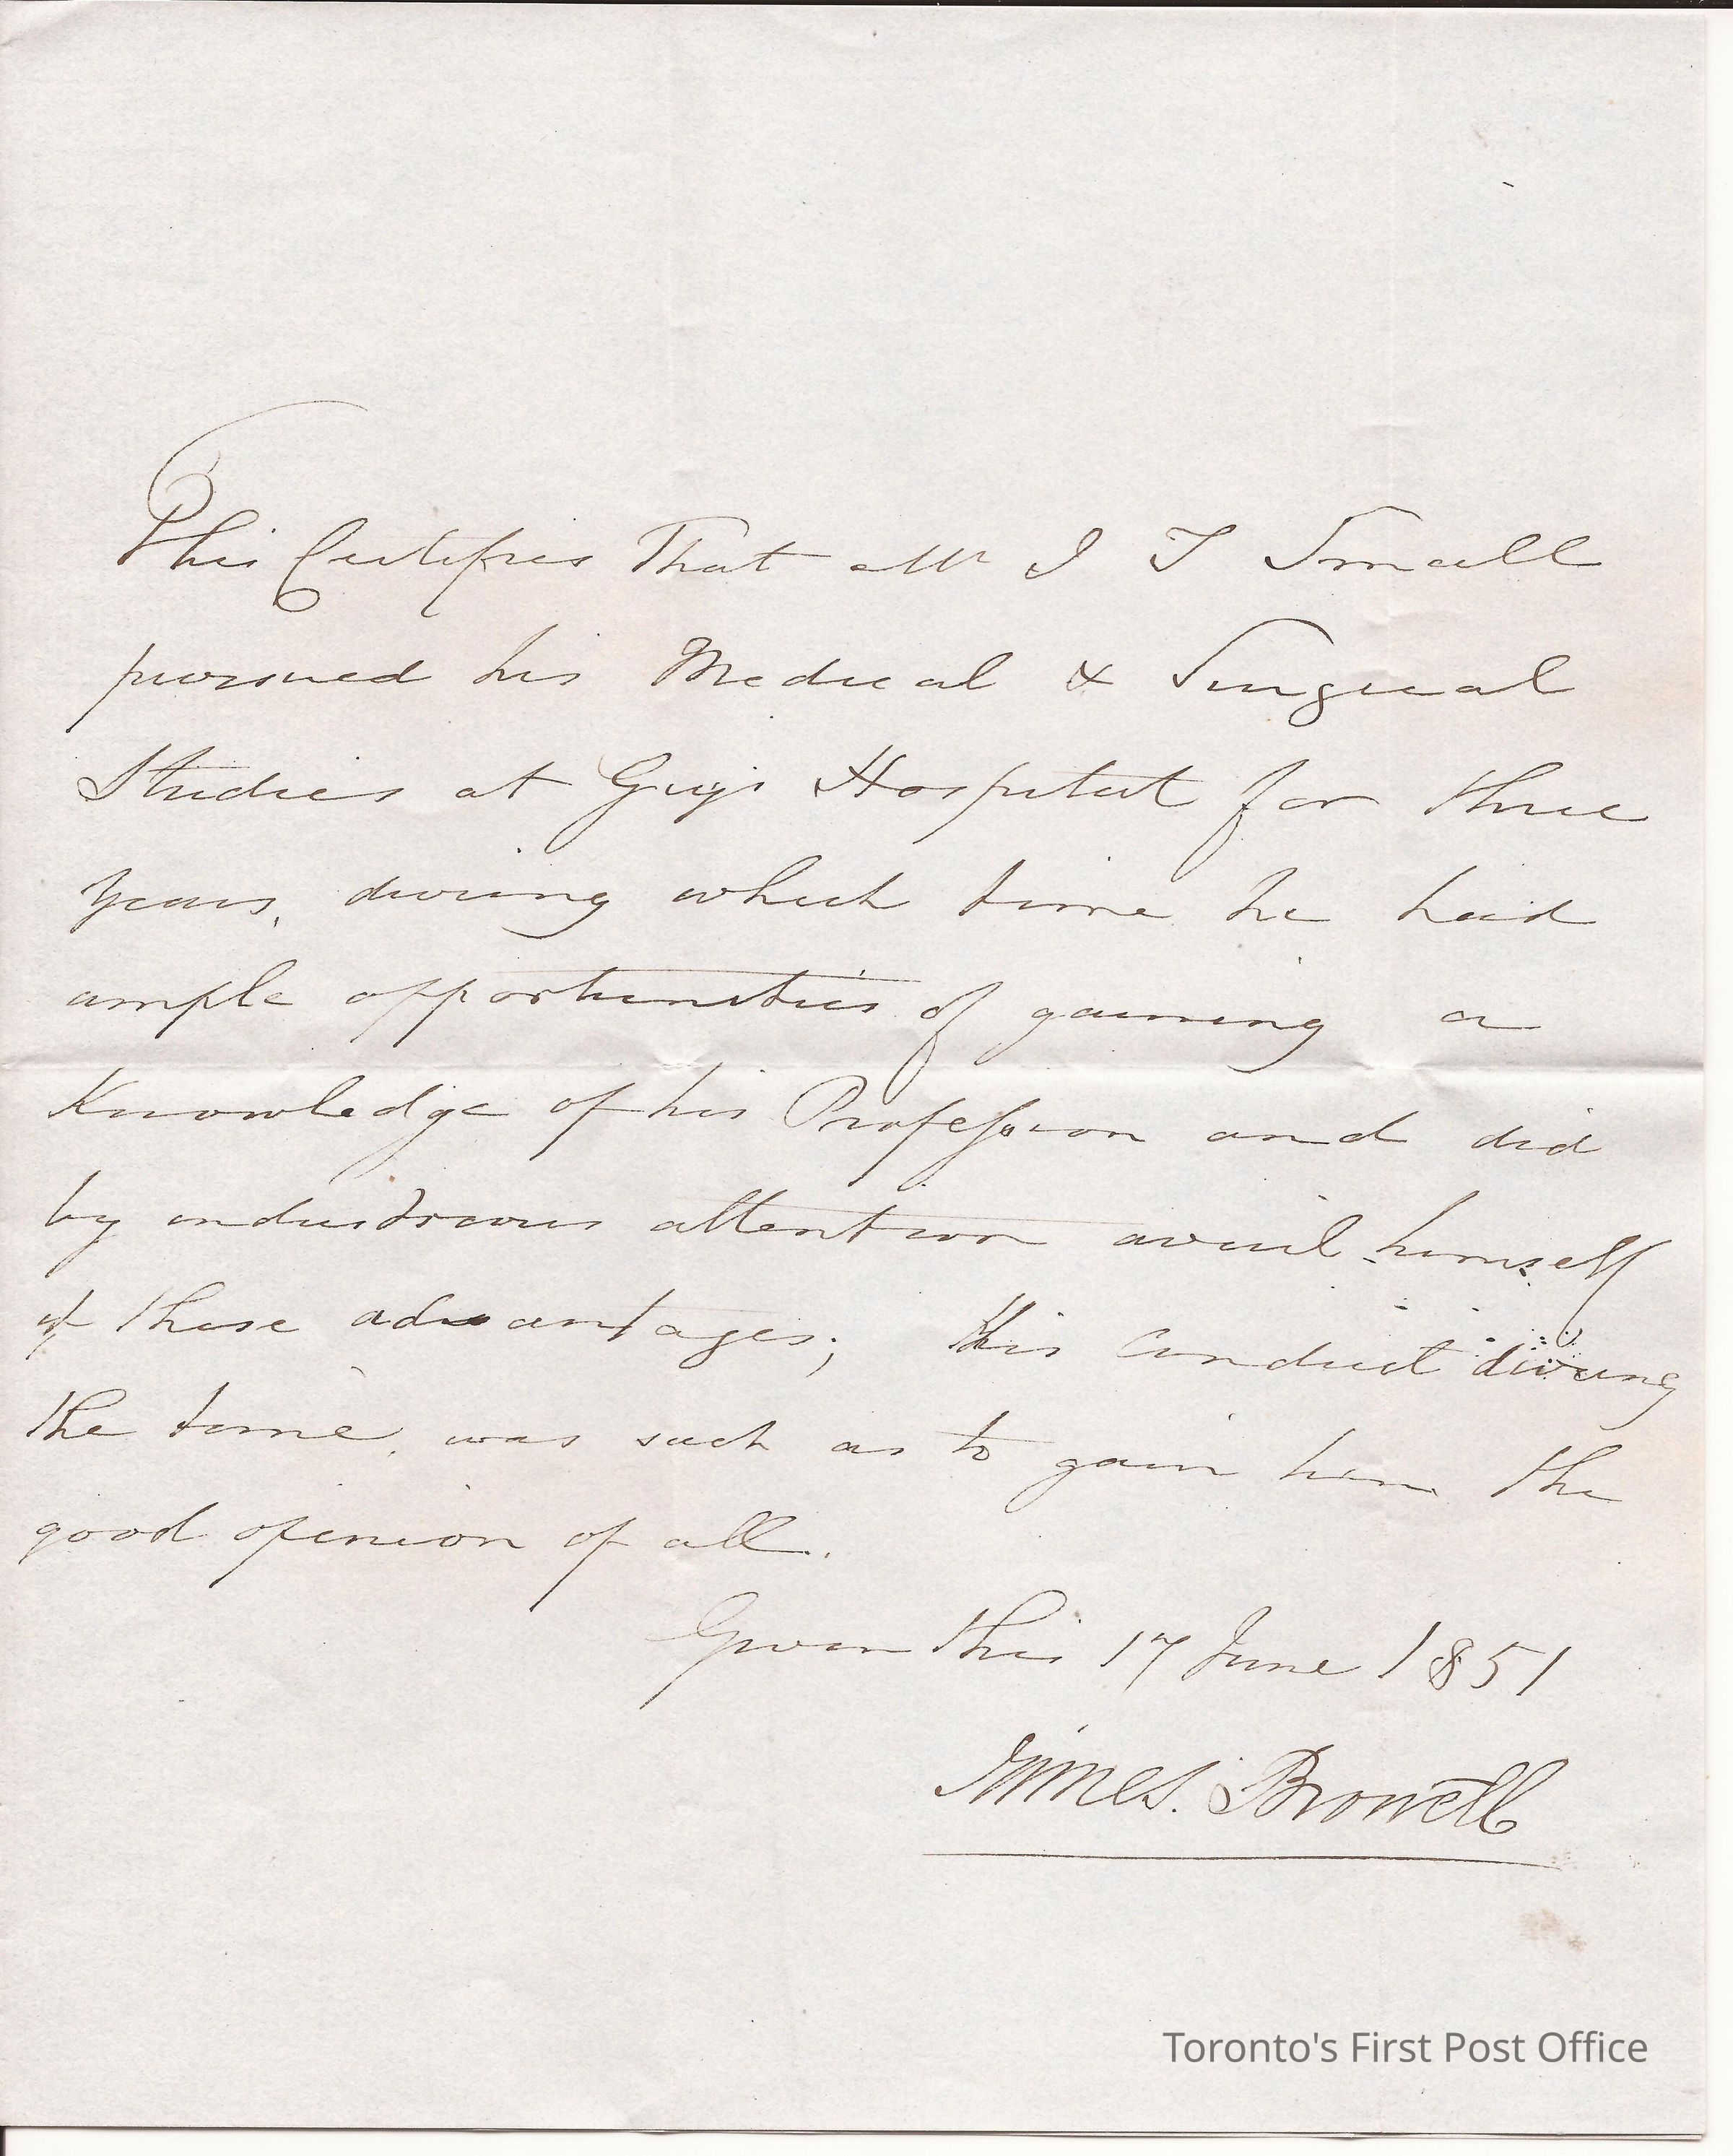 This Certifies That Mr J T Small
pursued his Medical & Surgical
Studies at Guys Hospital for three
years, during which time he had
ample opportunities of gaining a
Knowledge of his Profession and did
by industrious attention avail himself
of these advantages; this conduct during
the time, was such as to gain him the
good opinion of all.
Given this 17 June 1851
James. Browell
Toronto's First Post Office